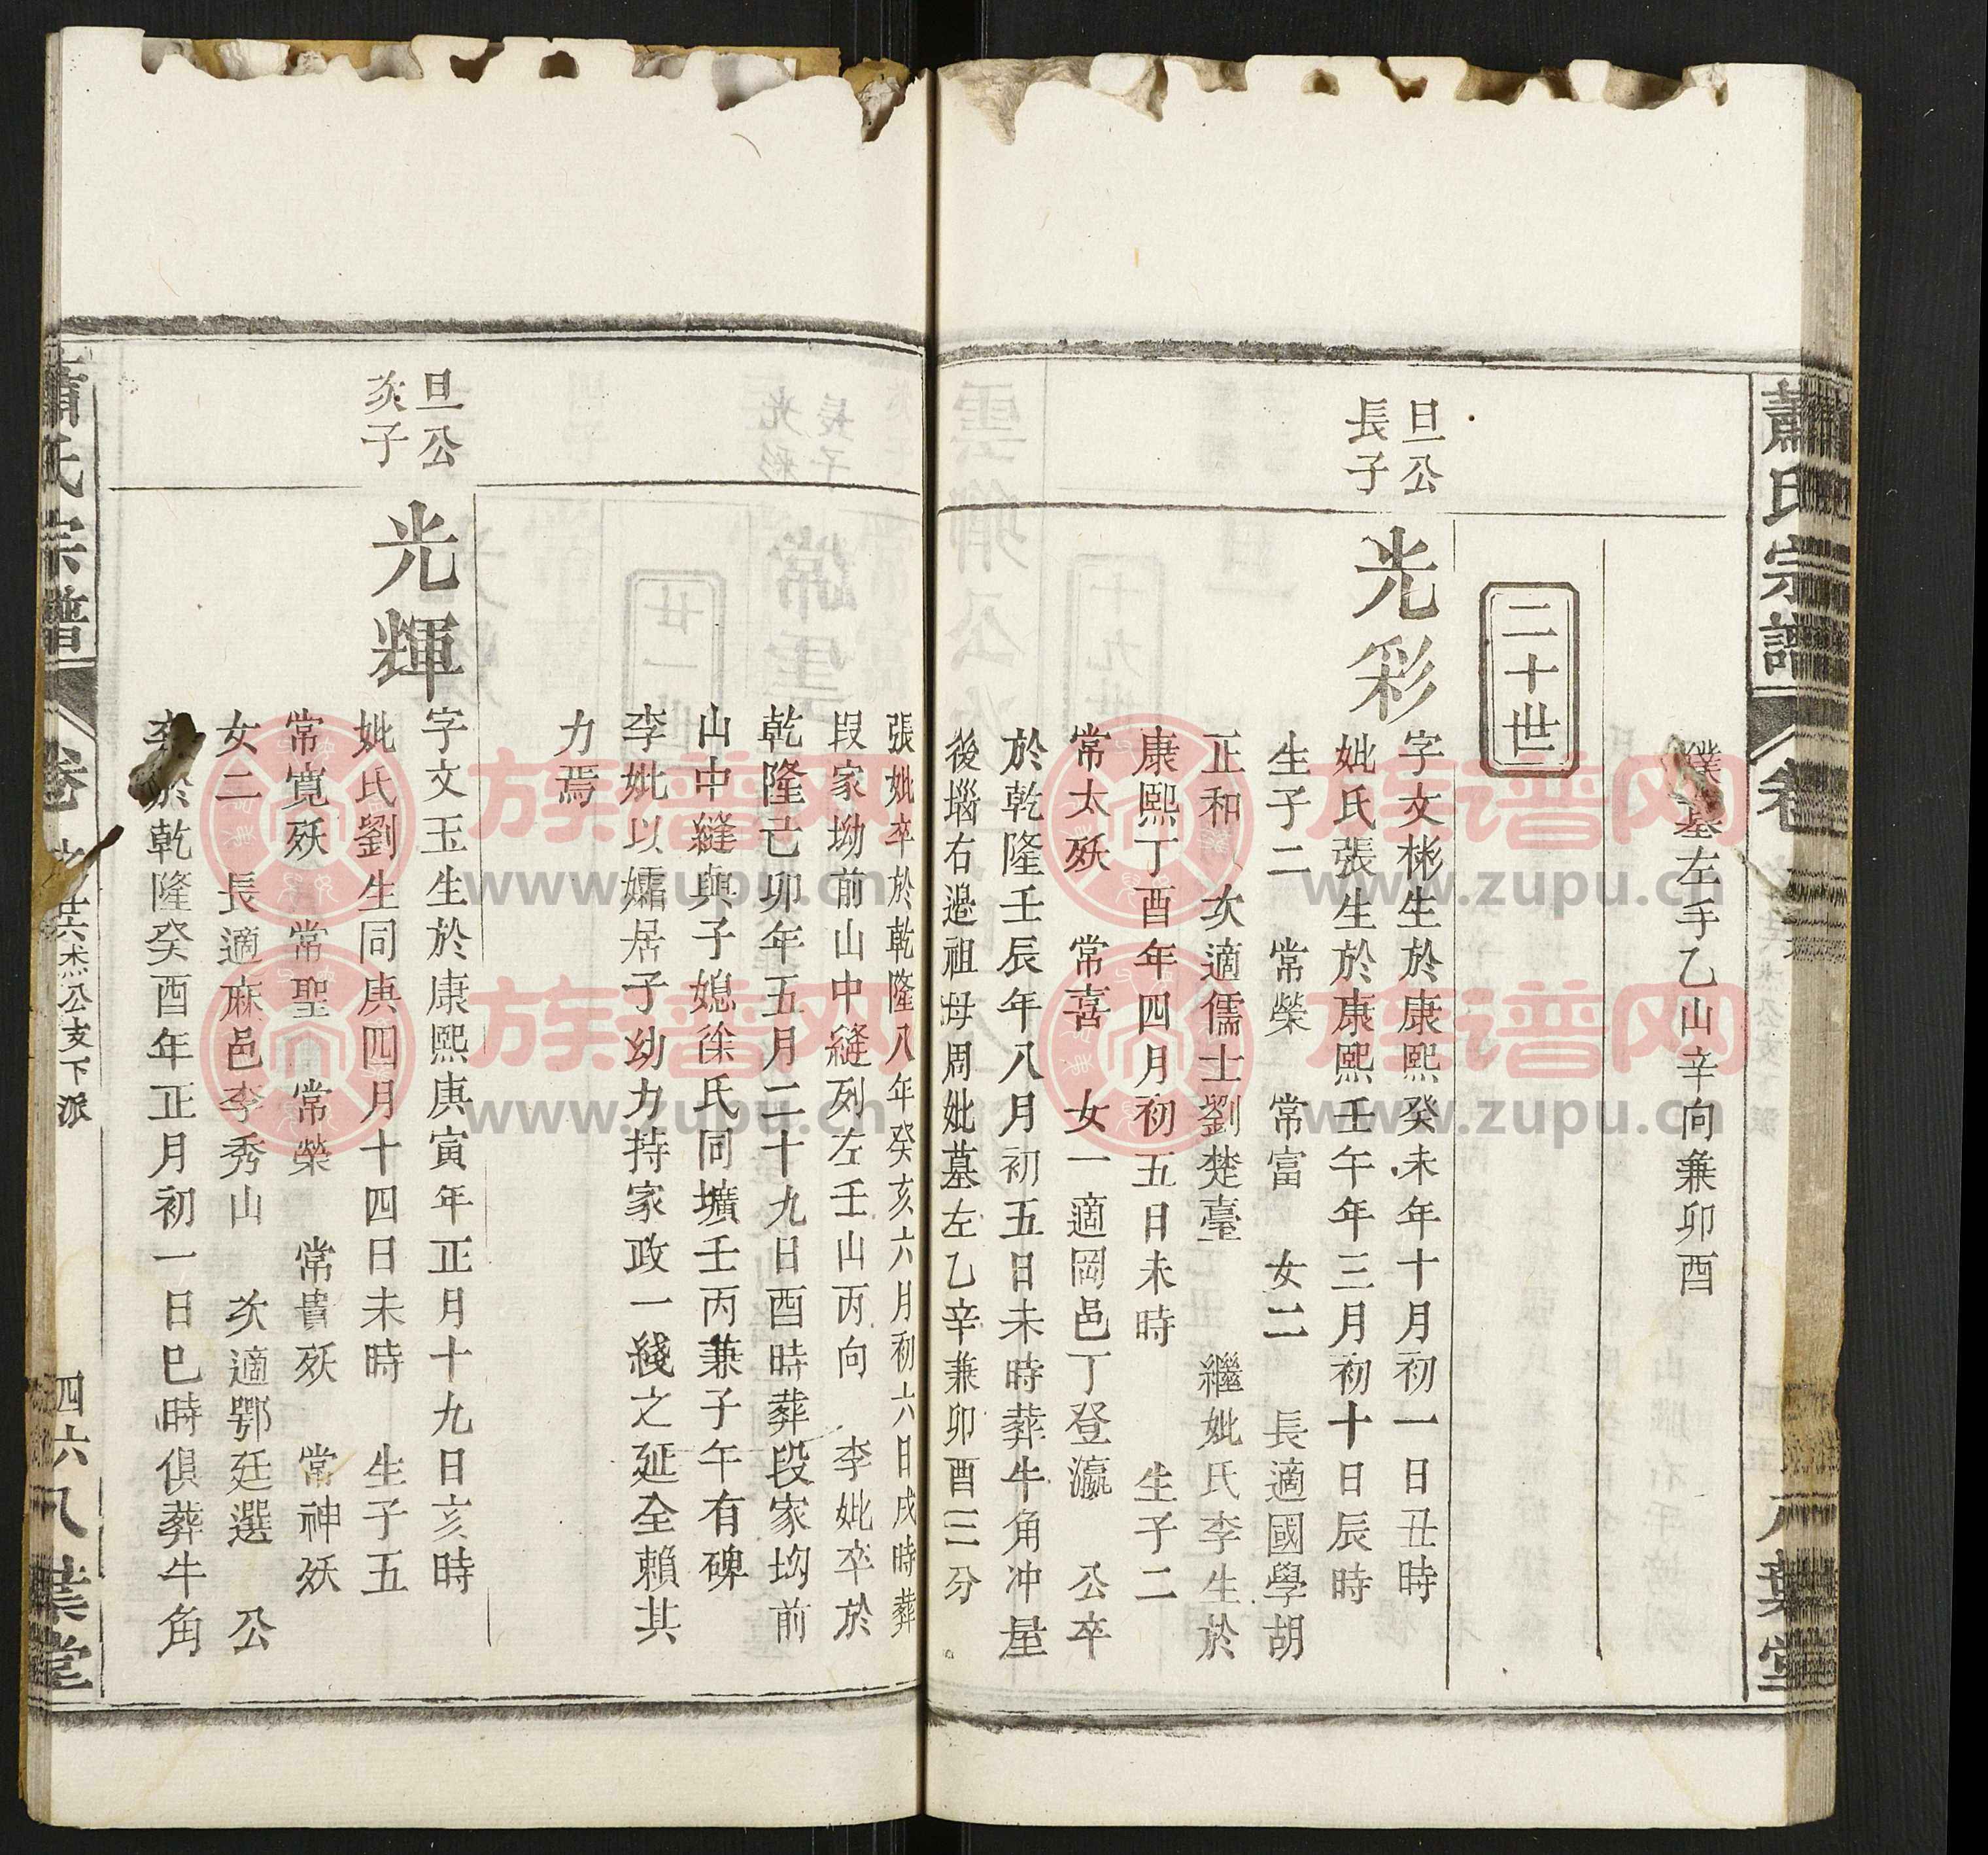 蕭氏宗譜
卷
八葉堂
墓左手乙山辛向兼卯酉
二十世
旦公
長子
光彩
字文彬生於康熙癸未年十月初一日丑時
妣氏張生於康熙壬午年三月初十日辰時
生子二 常榮 常富 女二 長適國學胡
正和 次適儒士劉楚臺 繼妣氏李生於
康熙丁酉年四月初五日未時 生子二
常太殀 常喜 女一適岡邑丁登瀛 公卒
於乾隆壬辰年八月初五日未時葬牛角冲屋
後堖右邉祖母周妣墓左乙辛兼卯酉三分
張妣卒於乾隆八年癸亥六月初六日戌時葬
段家坳前山中縫列左壬山丙向 李妣卒於
乾隆己卯年五月二十九日酉時葬段家坳前
山中縫與子媳徐氏同壙壬丙兼子午有碑
李妣以孀居子幼力持家政一綫之延全賴其
力焉
旦公
次子
光輝
字文玉生於康熙庚寅年正月十九日亥時
妣氏劉生同庚四月十四日未時 生子五
常寬殀 常聖 常榮 常貴殀 常神殀
女二 長適麻邑李秀山 次適鄂廷選 公
於乾隆癸酉年正月初一日巳時俱葬牛角
蕭氏宗譜
卷
杰公支下派
四六
八葉堂
族谱网
www.zupu.cn
族谱网
www.zupu.cn
族谱网
www.zupu.cn
族谱网
www.zupu.cn